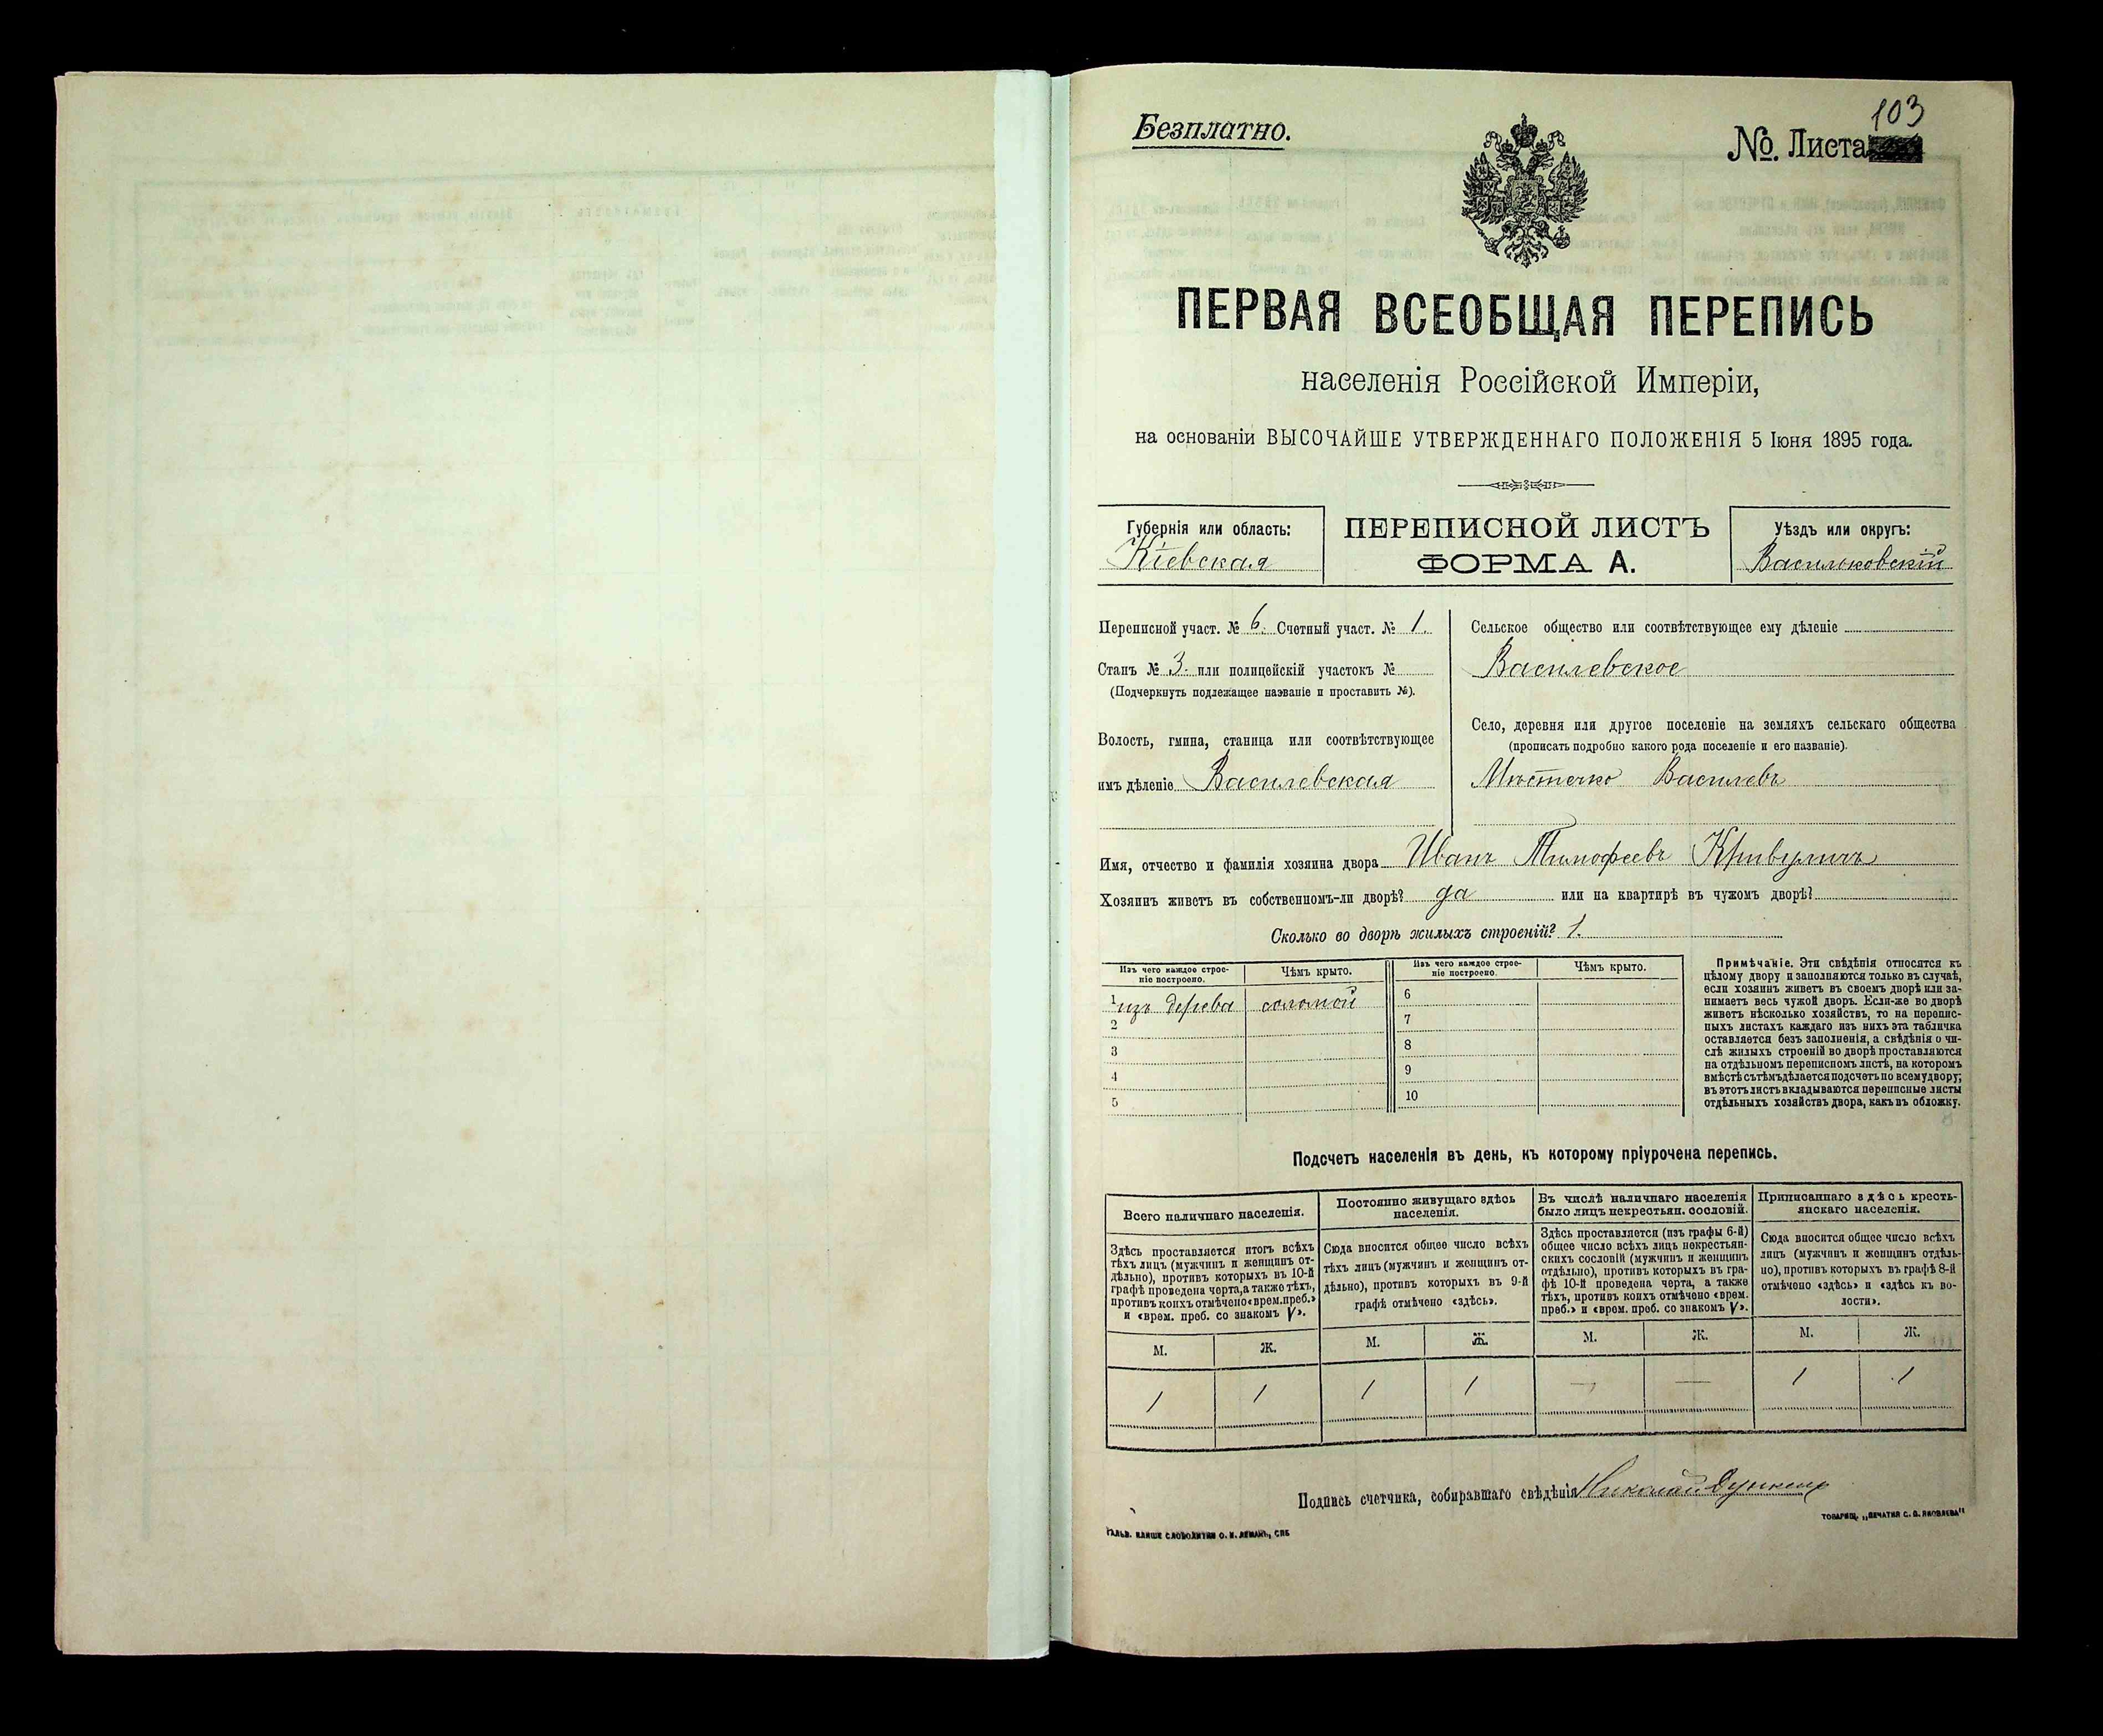 Безплатно.
103
№. Листа
ПЕРВАЯ ВСЕОБЩАЯ ПЕРЕПИСЬ
населенія Россійской Имперіи,
на основаніи ВЫСОЧАЙШЕ УТВЕРЖДЕННАГО ПОЛОЖЕНІЯ 5 Іюня 1895 года.
Губернія или область:
Кіевская
ПЕРЕПИСНОЙ ЛИСТЪ
ФОРМА А.
Уѣздъ или округъ:
Васильковскій
Переписной участ. № 6. Счетный участ. № 1.
Станъ № 3. или полицейскій участокъ №
(Подчеркнуть подлежащее названіе и проставить №).
Волость, гмина, станица или соотвѣтствующее
имъ дѣленіе Василевская
Сельское общество или соотвѣтствующее ему дѣленіе
Василевское
Село, деревня или другое поселеніе на земляхъ сельскаго общества
(прописать подробно какого рода поселеніе и его названіе).
Мѣстечко Василевъ
Имя, отчество и фамилія хозяина двора Иванъ Тимофеевъ
Хозяинъ живетъ въ собственномъ-ли дворѣ? да или на квартирѣ въ чужомъ дворѣ?
Сколько во дворѣ жилыхъ строеній? 1.
Изъ чего каждое строе-
ніе построено.
Чѣмъ крыто.
1 изъ дерева соломой
2
3
4
5
Изъ чего каждое строе-
ніе построено.
Чѣмъ крыто.
6
7
8
9
10
Примѣчаніе. Эти свѣдѣнія относятся къ
цѣлому двору и заполняются только въ случаѣ,
если хозяинъ живетъ въ своемъ дворѣ или за-
нимаетъ весь чужой дворъ. Если-же во дворѣ
живетъ нѣсколько хозяйствъ, то на перепис-
ныхъ листахъ каждаго изъ нихъ эта табличка
оставляется безъ заполненія, а свѣдѣнія о чи-
слѣ жилыхъ строеній во дворѣ проставляются
на отдѣльномъ переписномъ листѣ, на которомъ
вмѣстѣ съ тѣмъ дѣлается подсчетъ по всему двору;
въ этотъ листъ вкладываются переписные листы
отдѣльныхъ хозяйствъ двора, какъ въ обложку.
Подсчетъ населенія въ день, къ которому пріурочена перепись.
Всего наличнаго населенія.
Здѣсь проставляется итогъ всѣхъ
тѣхъ лицъ (мужчинъ и женщинъ от-
дѣльно), противъ которыхъ въ 10-й
графѣ проведена черта, а также тѣхъ,
противъ коихъ отмѣчено «врем. преб.»
и «врем. преб. со знакомъ V».
М. Ж.
1 1
Постоянно живущаго здѣсь
населенія.
Сюда вносится общее число всѣхъ
тѣхъ лицъ (мужчинъ и женщинъ от-
дѣльно), противъ которыхъ въ 9-й
графѣ отмѣчено «здѣсь».
М. Ж.
1 1
Въ числѣ наличнаго населенія
было лицъ некрестьян. сословій.
Здѣсь проставляется (изъ графы 6-й)
общее число всѣхъ лицъ некрестьян-
скихъ сословій (мужчинъ и женщинъ
отдѣльно), противъ которыхъ въ гра-
фѣ 10-й проведена черта, а также
тѣхъ, противъ коихъ отмѣчено «врем.
преб.» и «врем. преб. со знакомъ V».
М. Ж.
— —
Приписаннаго здѣсь кресть-
янскаго населенія.
Сюда вносится общее число всѣхъ
лицъ (мужчинъ и женщинъ отдѣль-
но), противъ которыхъ въ графѣ 8-й
отмѣчено «здѣсь» и «здѣсь къ во-
лости».
М. Ж.
1 1
Подпись счетчика, собиравшаго свѣдѣнія Николай
ГАЛЬВ. КЛИШЕ СЛОВОЛИТНИ О. И. ЛЕМАНЪ, СПБ
ТОВАРИЩ. „ПЕЧАТНЯ С. П. ЯКОВЛЕВА"